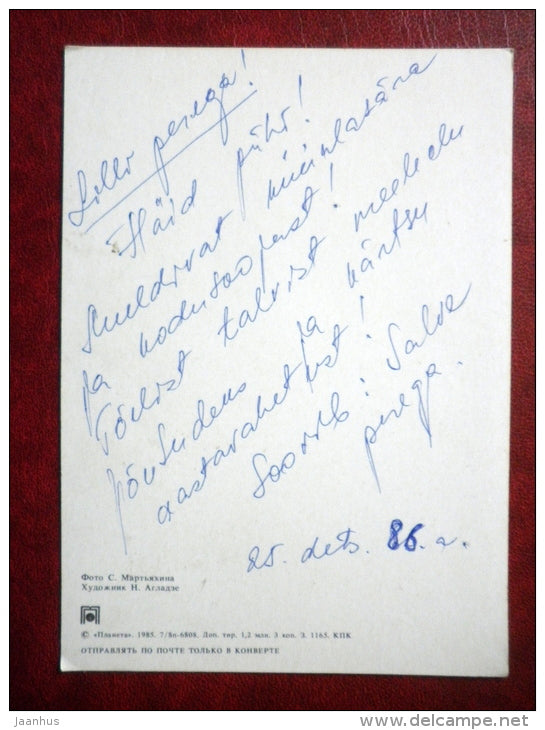 Lilli perega!
Häid pühi!
Säeldivat küünlasära
ja kodusoojust!
Tõelist talvist meeleolu
jõuludeks ja kärtsu
aastavahetust!
Soovib: Salve
perega.
25. dets. 86. a.
Фото С. Мартьяхина
Художник Н. Агладзе
© «Планета». 1985. 7/8п-6808. Доп. тир. 1,2 млн. 3 коп. З. 1165. КПК
ОТПРАВЛЯТЬ ПО ПОЧТЕ ТОЛЬКО В КОНВЕРТЕ
jaanhus
www.delcampe.net